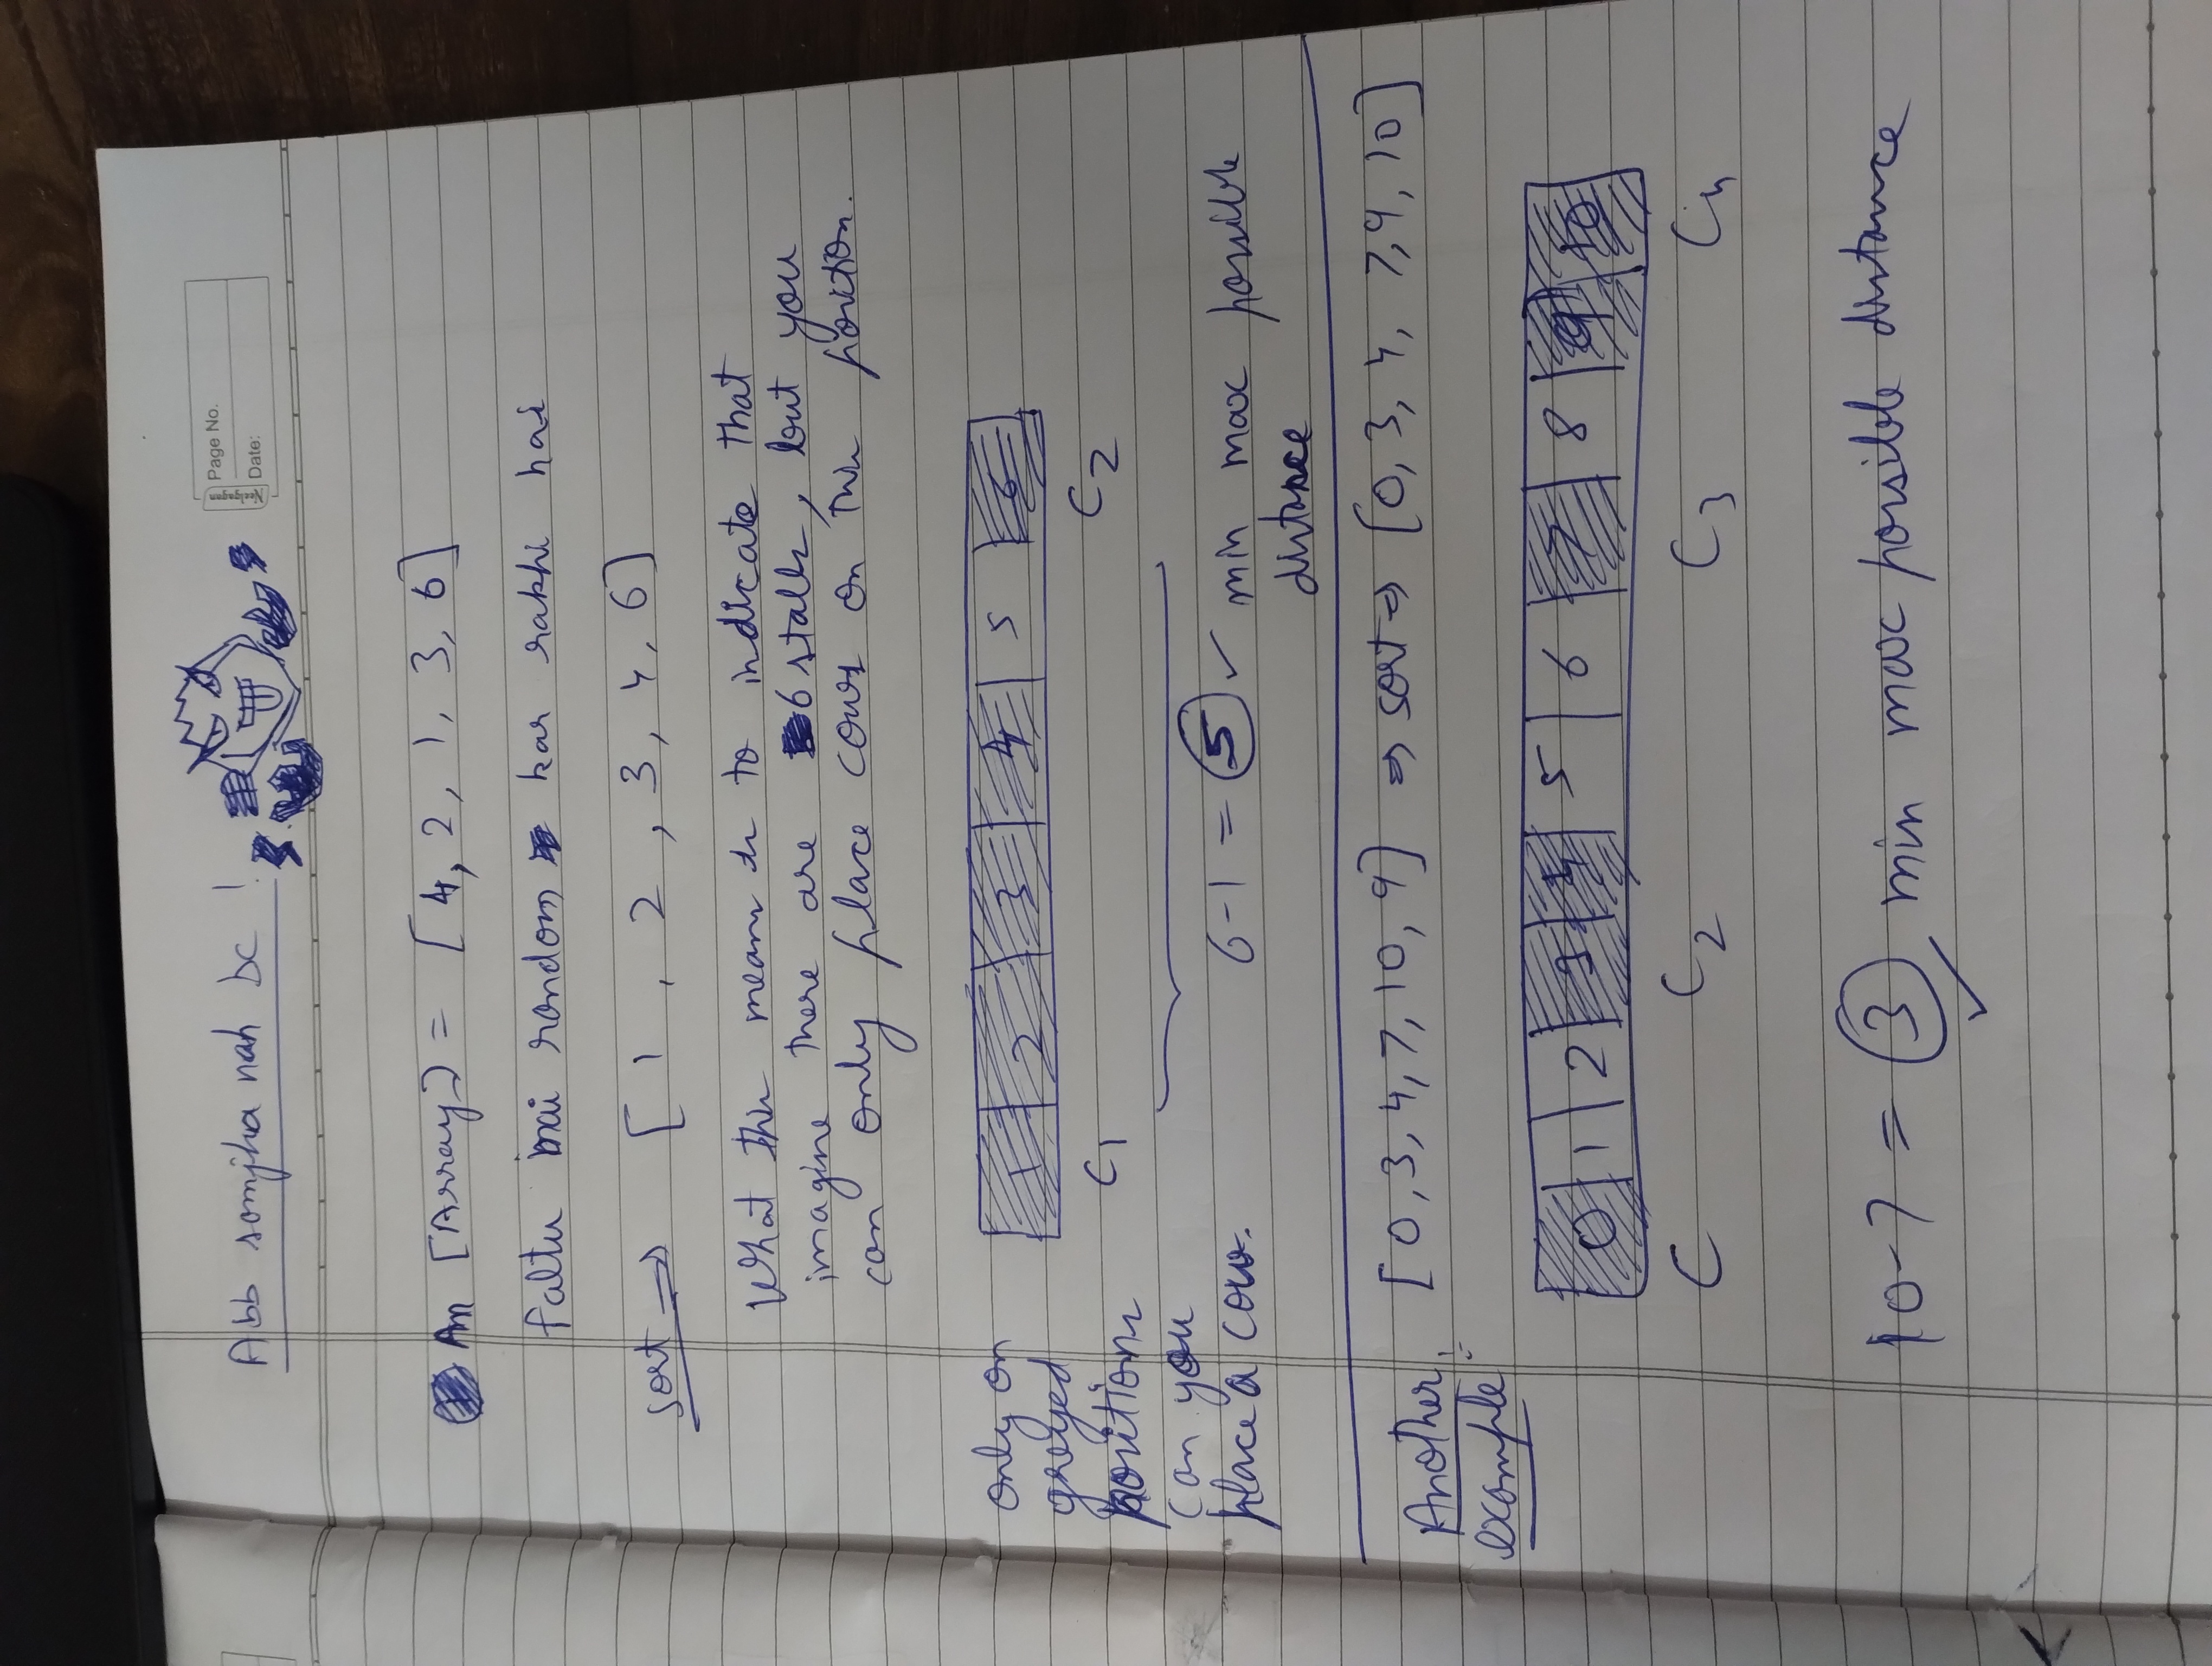 Abb somjha nah bc !
Neelgagan
Page No.
Date:
An [Array] = [4, 2, 1, 3, 6]
faltu mai random kar rakhi hai
sort ⇒ [ 1 , 2 , 3, 4, 6]
What this means is to indicate that
imagine there are 6 stalls, but you
can only place cows on this position.
only on
greyed
positions
can you
place a cow.
1 2 3 4 5 6
C1 C2
6-1 = 5 ✓ min max possible
distance
Another
example :-
[0, 3, 4, 7, 10, 9] ⇒ sort ⇒ [0, 3, 4, 7, 9, 10]
0 1 2 3 4 5 6 7 8 9 10
C C2 C3 C4
10-7 = 3 min max possible distance
✓